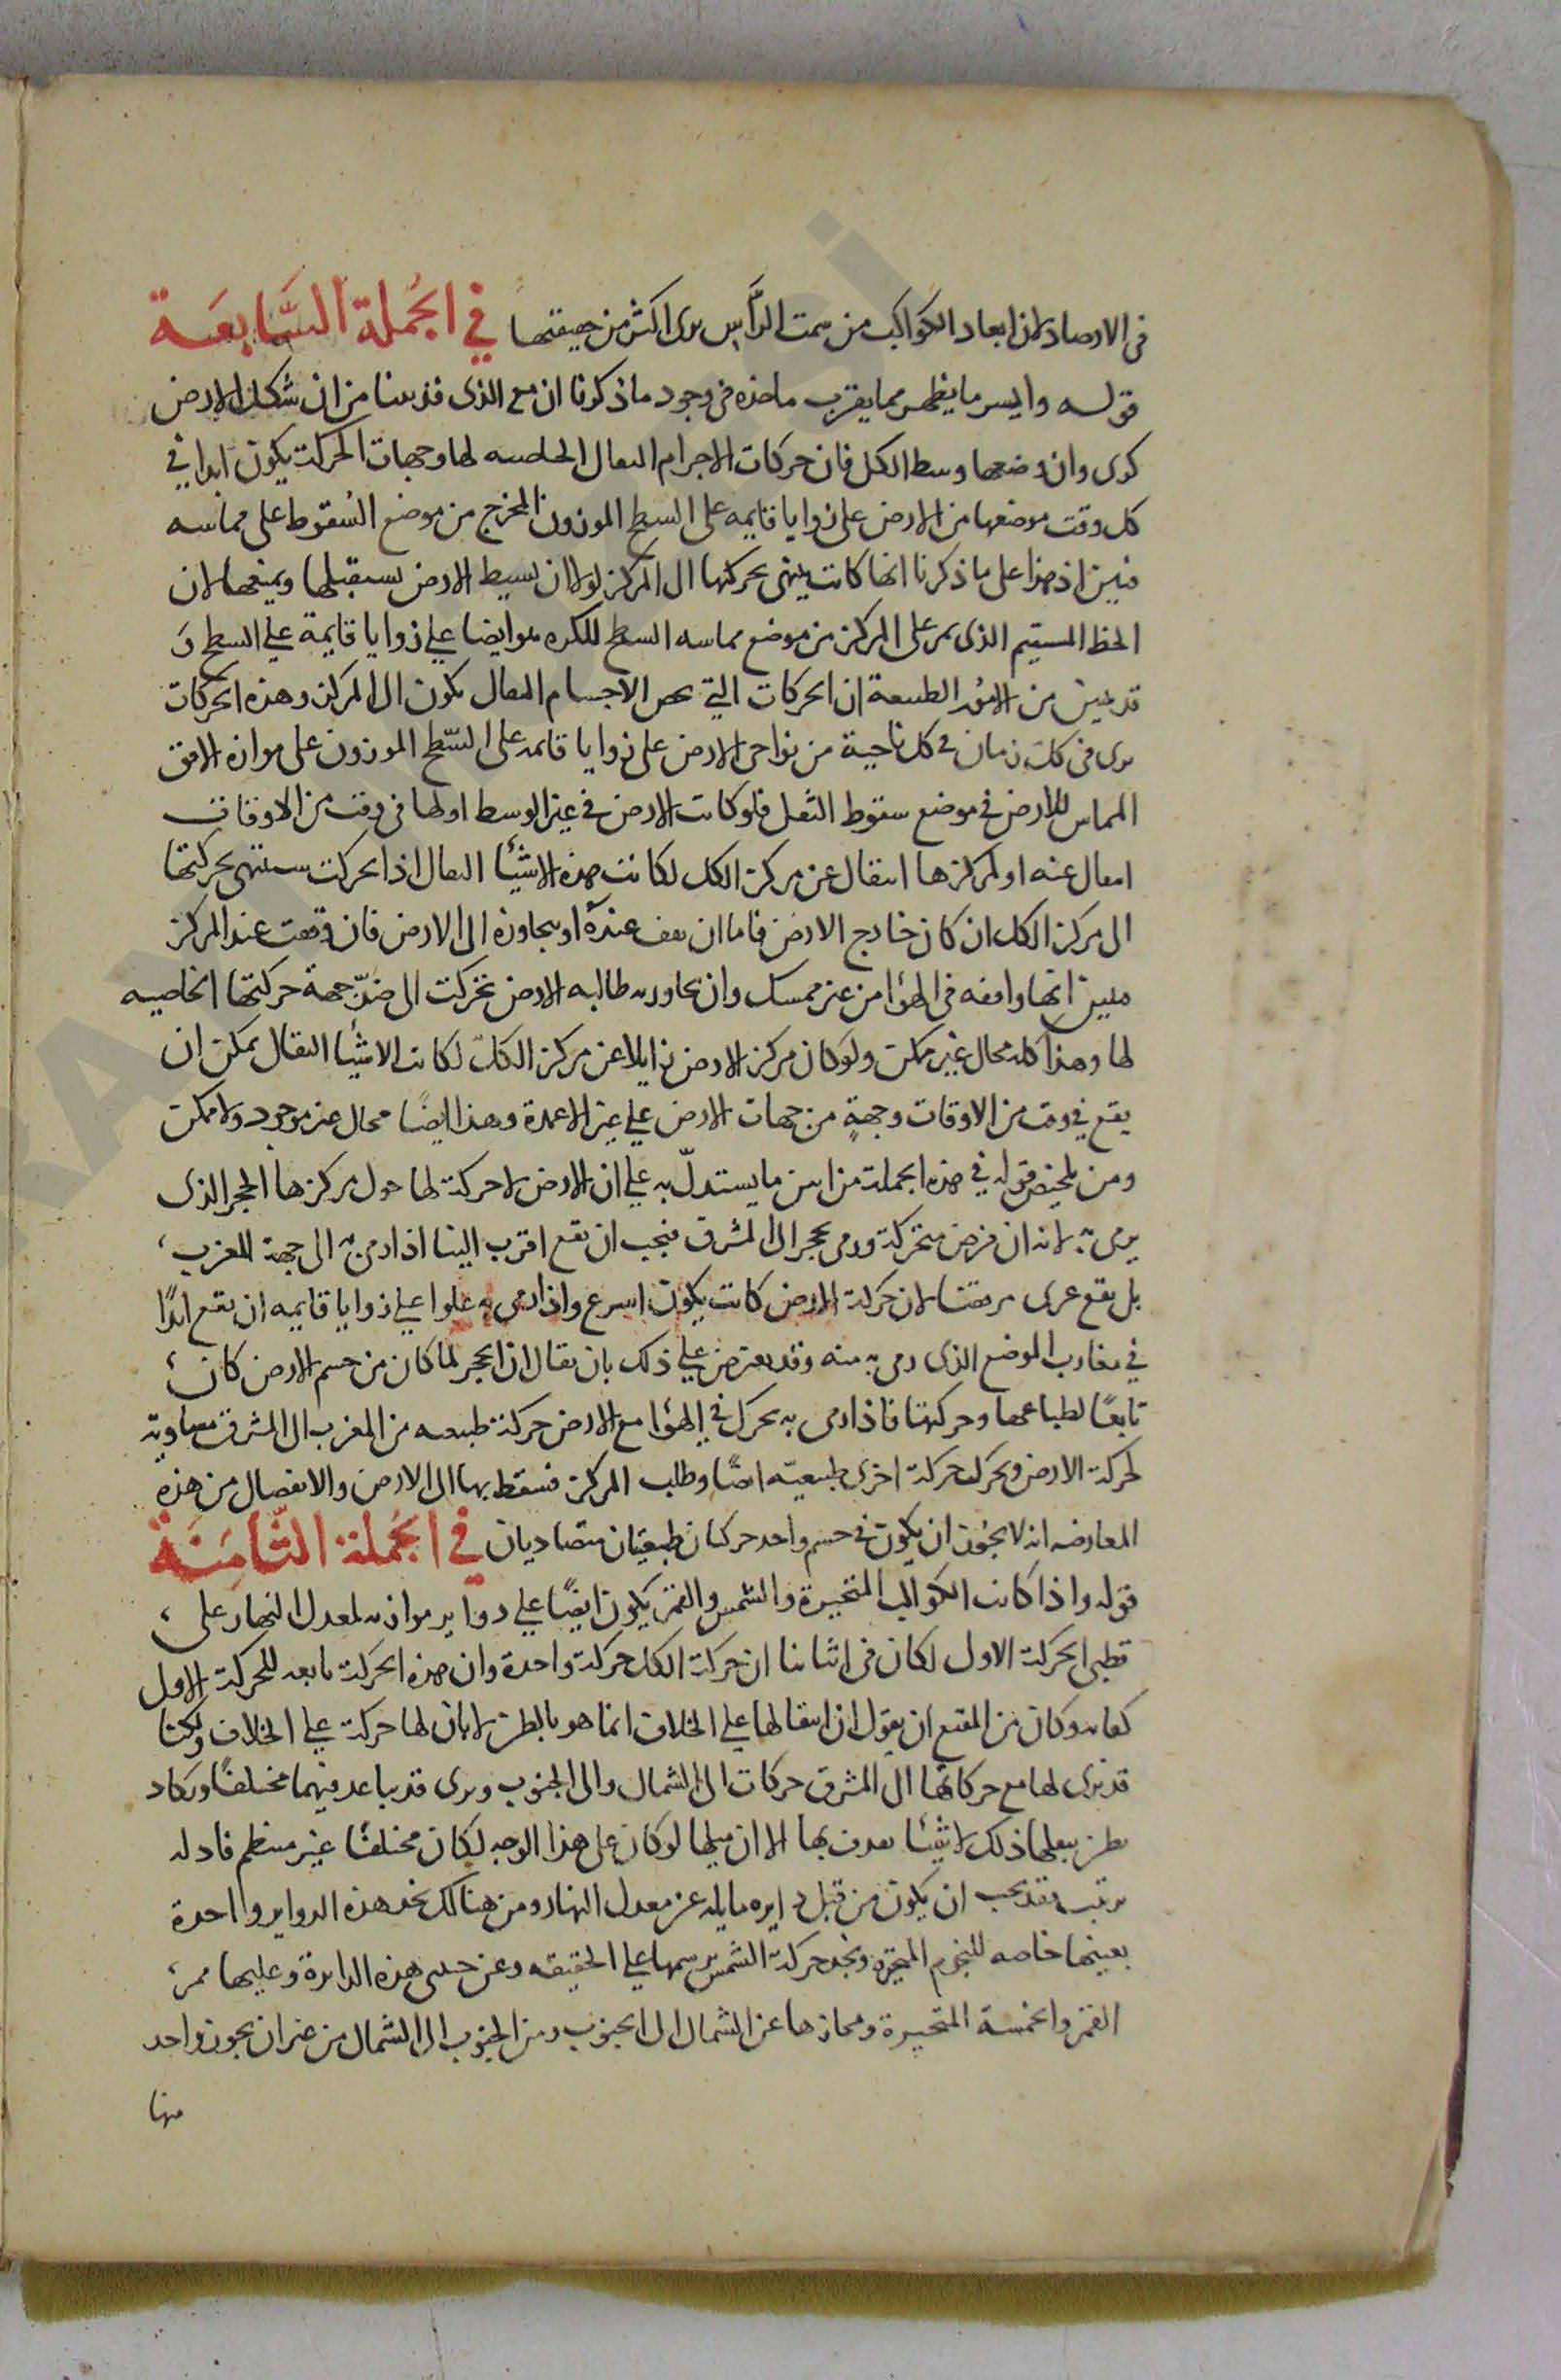 في الارصاد لان ابعاد الكواكب من سمت الرأس يرى اكثر من حقيقتها في الجُملة السَّابعَة
قوله وايسر ما يظهر مما يقرب ماخذه في وجود ما ذكرنا ان مع الذى قد بينا من ان شكل الارض
كرى وان وضعها وسط الكل فان حركات الاجرام الثقال الخاصيه لها وجهات الحركة يكون ابدا في
كل وقت موضعها من الارض على زوايا قايمه على السطح الموزون المخرج من موضع السُقوط على مماسه
فبين اذ هذا على ما ذكرنا انها كانت ينتهى بحركتها الى المركز لولا ان بسيط الارض يستقبلها ويمنعها لان
الخط المستقيم الذى يمر على المركز من موضع مماسه السطح للكره هو ايضا على زوايا قايمة على السطح وَ
قد تبين من الامُور الطبيعية ان الحركات التي تخص الاجسام الثقال يكون الى المركز وهذه الحركات
يرى في كل زمان في كل ناحية من نواحى الارض على زوايا قايمه على السّطح الموزون على موازاه الافق
المماس للارض في موضع سقوط الثقل فلو كانت الارض في غير الوسط او لها في وقت من الاوقات
انتقال عنه او لمركزها انتقال عن مركز الكل لكانت هذه الاشئا الثقال اذا تحركت ستنتهى بحركتها
الى مركز الكل ان كان خارج الارض فاما ان يقف عنده او يجاوزه الى الارض فان وقعت عند المركز
فبين انها واقفه في الهوٓا من غير ممسك وان تجاوزته طالبه الارض تحركت الى ضدّ جهة حركتها الخاصيه
لها وهذا كله محال غير ممكن ولو كان مركز الارض زايلا عن مركز الكلّ لكانت الاشئا الثقال يمكن ان
يقع في وقت من الاوقات وجهةٍ من جهات الارض على غير الاعمدة وهذا ايضًا محال غير موجود ولا ممكن
ومن تلخيص قوله في هذه الجملة من ابين ما يستدلّ به على ان الارض لا حركة لها حول مركزها الحجر الذى
يرمى به لانه ان فرض متحركة ورمى بحجر الى المشرق فيجب ان تقع اقرب الينا اذا رمى به الى جهة المغرب
بل يقع غربى مرمتنا لان حركة الارض كانت يكون اسرع واذا رمى به علوا على زوايا قايمه ان يقع ابدًا
في مغارب الموضع الذى رمى به منه وقد يعترض على ذلك بان يقال ان الحجر لما كان من جسم الارض كان
تابعًا لطباعها وحركتها فاذا رمى به تحرك في الهوٓا مع الارض حركة طبيعيه من المغرب الى المشرق مساوية
لحركة الارض وتحرك حركة اخرى طبيعيّه ايضًا وطلب المركز فسقط بها الى الارض والانفصال من هذه
المعارضه انه لا يجُوز ان يكون في جسم واحد حركتان طبيعيتان متضاديان في الجُملة الثّامِنَة
قوله واذا كانت الكواكب المتحيرة والشمس والقمر يكون ايضًا على دواير موازيه لمعدل النهار على
قطبى الحركة الاولى لكان في اثباتنا ان حركة الكل حركة واحدة وان هذه الحركة تابعه للحركة الاولى
كفايه وكان من المقنع ان يقول ان انتقالها على الخلاف انما هو بالظن لا بان لها حركة على الخلاف ولكنا
قد نرى لها مع حركاتها الى المشرق حركات الى الشمال والى الجنوب ونرى قدر تباعد فيهما مختلفًا ونكاد
نظن بعلها ذلك لاشئا يعدف بها الا ان ميلها لو كان على هذا الوجه لكان مختلفًا غير منتظم فاذ له
ترتيب فقد يجب ان يكون من قبل دايره مايله عن معدل النهار ومن هنالك نجد هذه الدواير واحدة
بعينها خاصه للنجوم المتحيره ونجد حركة الشمس يرسمها على الحقيقه وعن حلى هذه الدايرة وعليها ممر
القمر والخمسة المتحيرة ومجازها عن الشمال الى الجنوب ومن الجنوب الى الشمال من غير ان يجوز واحد
منها